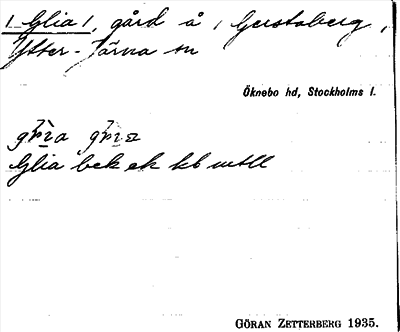 1 Glia 1, gård å 1 Gerstaberg,
Ytter-Järna sn
Öknebo hd, Stockholms l.
Glia bek ek kb mtll
GÖRAN ZETTERBERG 1935.